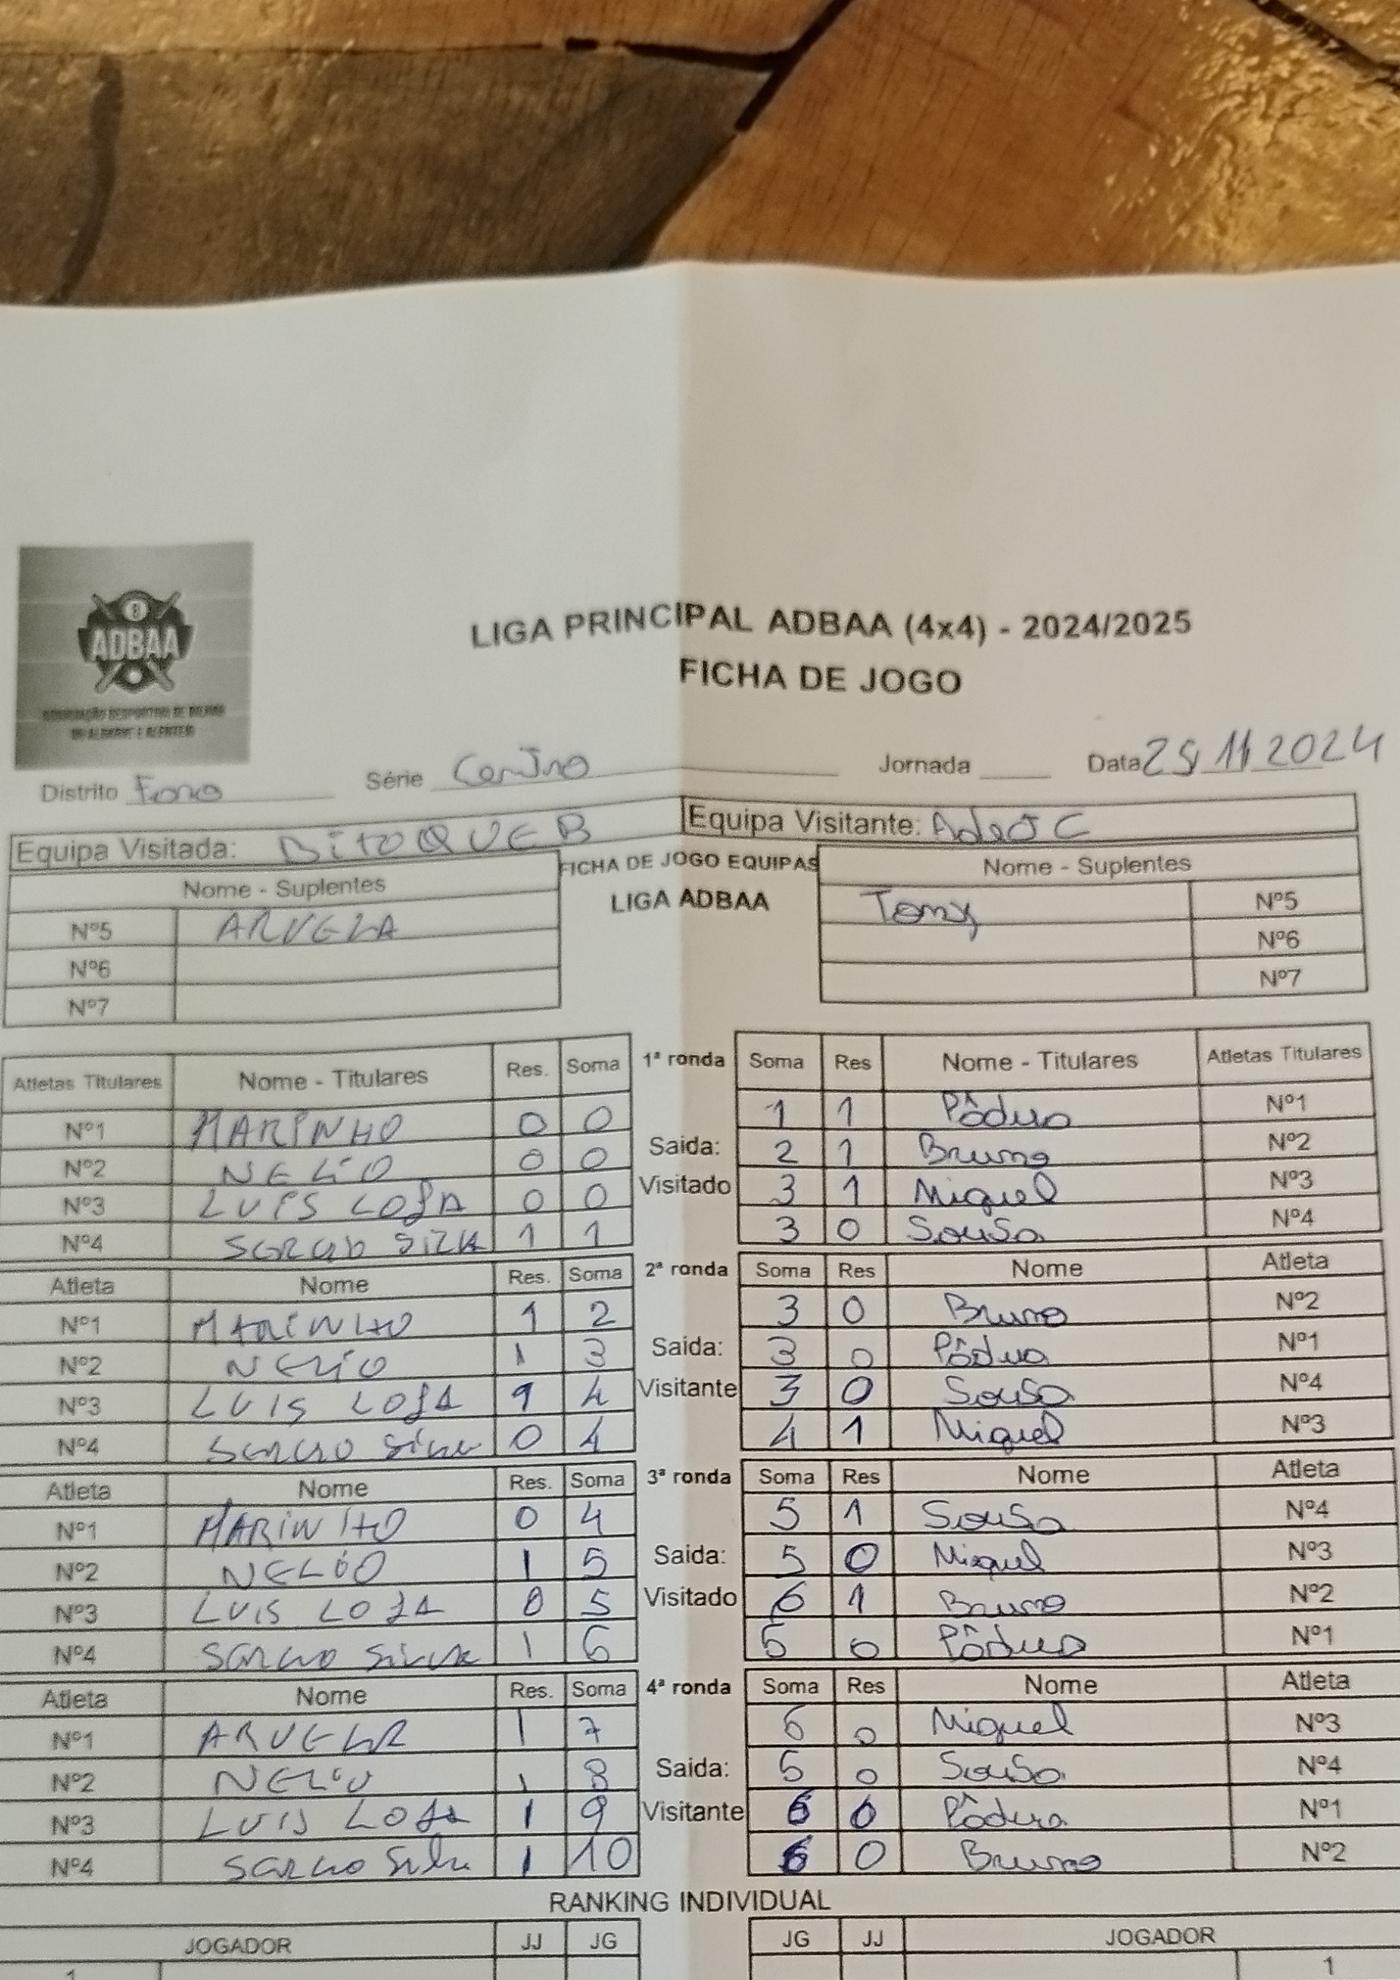 ADBAA
ASSOCIAÇÃO DESPORTIVA DE BILHAR
DO ALGARVE E ALENTEJO
LIGA PRINCIPAL ADBAA (4x4) - 2024/2025
FICHA DE JOGO
Distrito Série Jornada Data 25/11 2024
Equipa Visitada: BITOQUE B Equipa Visitante:
Nome - Suplentes FICHA DE JOGO EQUIPAS Nome - Suplentes
LIGA ADBAA
Nº5 ARVELA Tony Nº5
Nº6 Nº6
Nº7 Nº7
Atletas Titulares Nome - Titulares Res. Soma 1ª ronda Soma Res Nome - Titulares Atletas Titulares
Nº1 MARINHO 0 0 1 1 Pádua Nº1
Nº2 NELIO 0 0 Saida: 2 1 Bruno Nº2
Nº3 LUIS LOJA 0 0 Visitado 3 1 Miguel Nº3
Nº4 SERGIO SILVA 1 1 3 0 Sousa Nº4
Atleta Nome Res. Soma 2ª ronda Soma Res Nome Atleta
Nº1 MARINHO 1 2 3 0 Bruno Nº2
Nº2 NELIO 1 3 Saida: 3 0 Pádua Nº1
Nº3 LUIS LOJA 1 4 Visitante 3 0 Sousa Nº4
Nº4 SERGIO Silva 0 4 4 1 Miguel Nº3
Atleta Nome Res. Soma 3ª ronda Soma Res Nome Atleta
Nº1 MARINHO 0 4 5 1 Sousa Nº4
Nº2 NELIO 1 5 Saida: 5 0 Miguel Nº3
Nº3 LUIS LOJA 0 5 Visitado 6 1 Bruno Nº2
Nº4 SERGIO Silva 1 6 6 0 Pádua Nº1
Atleta Nome Res. Soma 4ª ronda Soma Res Nome Atleta
Nº1 ARVELA 1 7 6 0 Miguel Nº3
Nº2 NELIO 1 8 Saida: 6 0 Sousa Nº4
Nº3 LUIS LOJA 1 9 Visitante 6 0 Pádua Nº1
Nº4 SERGIO Silva 1 10 6 0 Bruno Nº2
RANKING INDIVIDUAL
JOGADOR JJ JG JG JJ JOGADOR
1 1